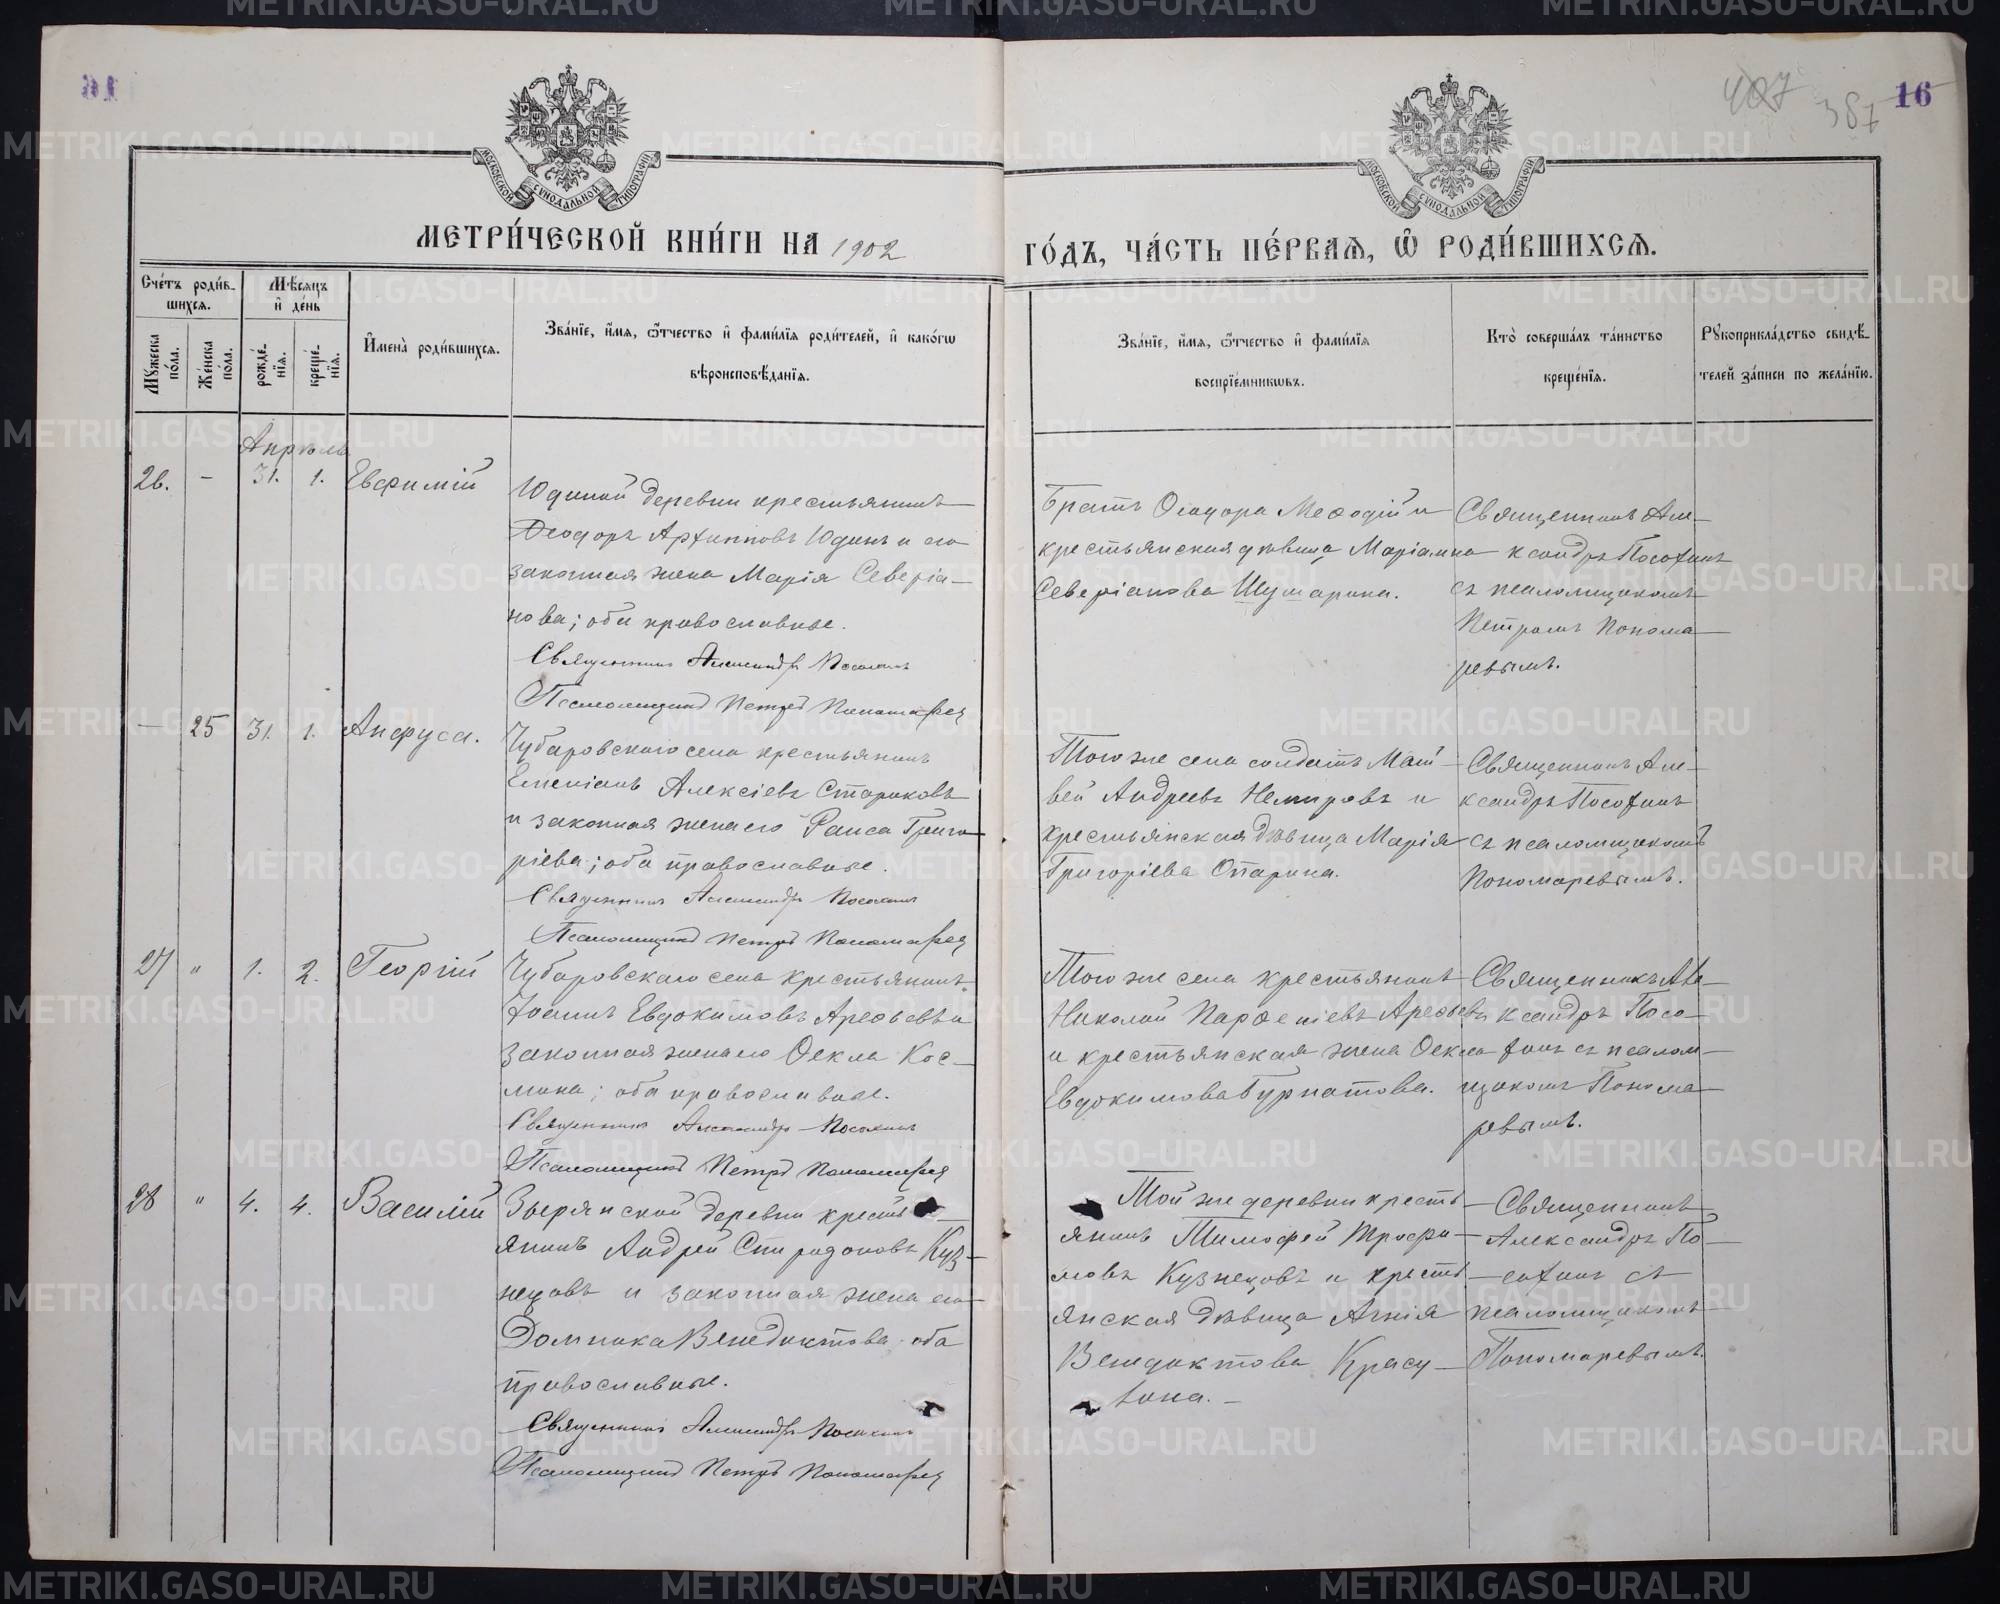 16
407 387
МОСКОВСКОЙ СѴНОДАЛЬНОЙ ТИПОГРАФІИ
МОСКОВСКОЙ СѴНОДАЛЬНОЙ ТИПОГРАФІИ
МЕТРИ́ЧЕСКОЙ КНИ́ГИ НА 1902
ГО́ДЪ, ЧА́СТЬ ПЕ́РВАѦ, Ѡ҆ РОДИ́ВШИХСѦ.
Сче́тъ роди́в-
шихсѧ.
Мꙋжеска по́ла.
Же́нска по́ла.
Мѣ́сѧцъ
и҆ де́нь
рожде́-
нїѧ.
креще́-
нїѧ.
И҆мена̀ роди́вшихсѧ.
Зва́нїе, и҆́мѧ, ѻ҆́тчество и҆ фами́лїѧ роди́телей, и҆ како́гѡ
вѣроисповѣ́данїѧ.
Зва́нїе, и҆́мѧ, ѻ҆́тчество и҆ фами́лїѧ
воспрїе́мникѡвъ.
Кто̀ соверша́лъ та́инство
креще́нїѧ.
Рꙋкоприкла́дство свидѣ́-
телей за́писи по жела́нїю.
Апрѣль
26. – 31. 1. Евфимій
Юдиной деревни крестьянинъ
Ѳеодоръ Архипповъ Юдинъ и его
законная жена Марія Северіа-
нова; оба православные.
Священникъ Александръ Посохинъ
Псаломщикъ Петръ Пономарев
Братъ Ѳеодора Меѳодій и
крестьянская дѣвица Маріамна
Северіанова Шумарина.
Священникъ Але-
ксандръ Посохинъ
съ псаломщикомъ
Петромъ Понома-
ревымъ.
— 25 31. 1. Анфуса.
Чубаровскаго села крестьянинъ
Емеліанъ Алексіевъ Стариковъ
и законная жена его Раиса Григо-
ріева; оба православные.
Священникъ Александръ Посохинъ
Псаломщикъ Петръ Пономарев
Того же села солдатъ Мат-
вей Андреевъ Немировъ и
крестьянская дѣвица Марія
Григоріева Опарина.
Священникъ Але-
ксандръ Посохинъ
съ псаломщикомъ
Пономаревымъ.
27 " 1. 2. Георгій
Чубаровскаго села крестьянинъ
Іоаннъ Евдокимовъ Арефьевъ и
законная жена его Ѳекла Кос-
мина; оба православные.
Священникъ Александръ Посохинъ
Псаломщикъ Петръ Пономарев
Того же села крестьянинъ
Николай Парѳеніевъ Арефьевъ
и крестьянская жена Ѳекла
Евдокимова Бурнатова.
Священникъ Але-
ксандръ Посо-
хинъ съ псалом-
щикомъ Понома-
ревымъ.
28 " 4. 4. Василій
Зырянской деревни кресть-
янинъ Андрей Спиридоновъ Куз-
нецовъ и законная жена его
Домника Венедиктова оба
православные.
Священникъ Александръ Посохинъ
Псаломщикъ Петръ Пономарев
Той же деревни кресть-
янинъ Тимофей Трофи-
мовъ Кузнецовъ и кресть-
янская дѣвица Агнія
Венедиктова Красу-
лина.
Священникъ
Александръ По-
сохинъ съ
псаломщикомъ
Пономаревымъ.